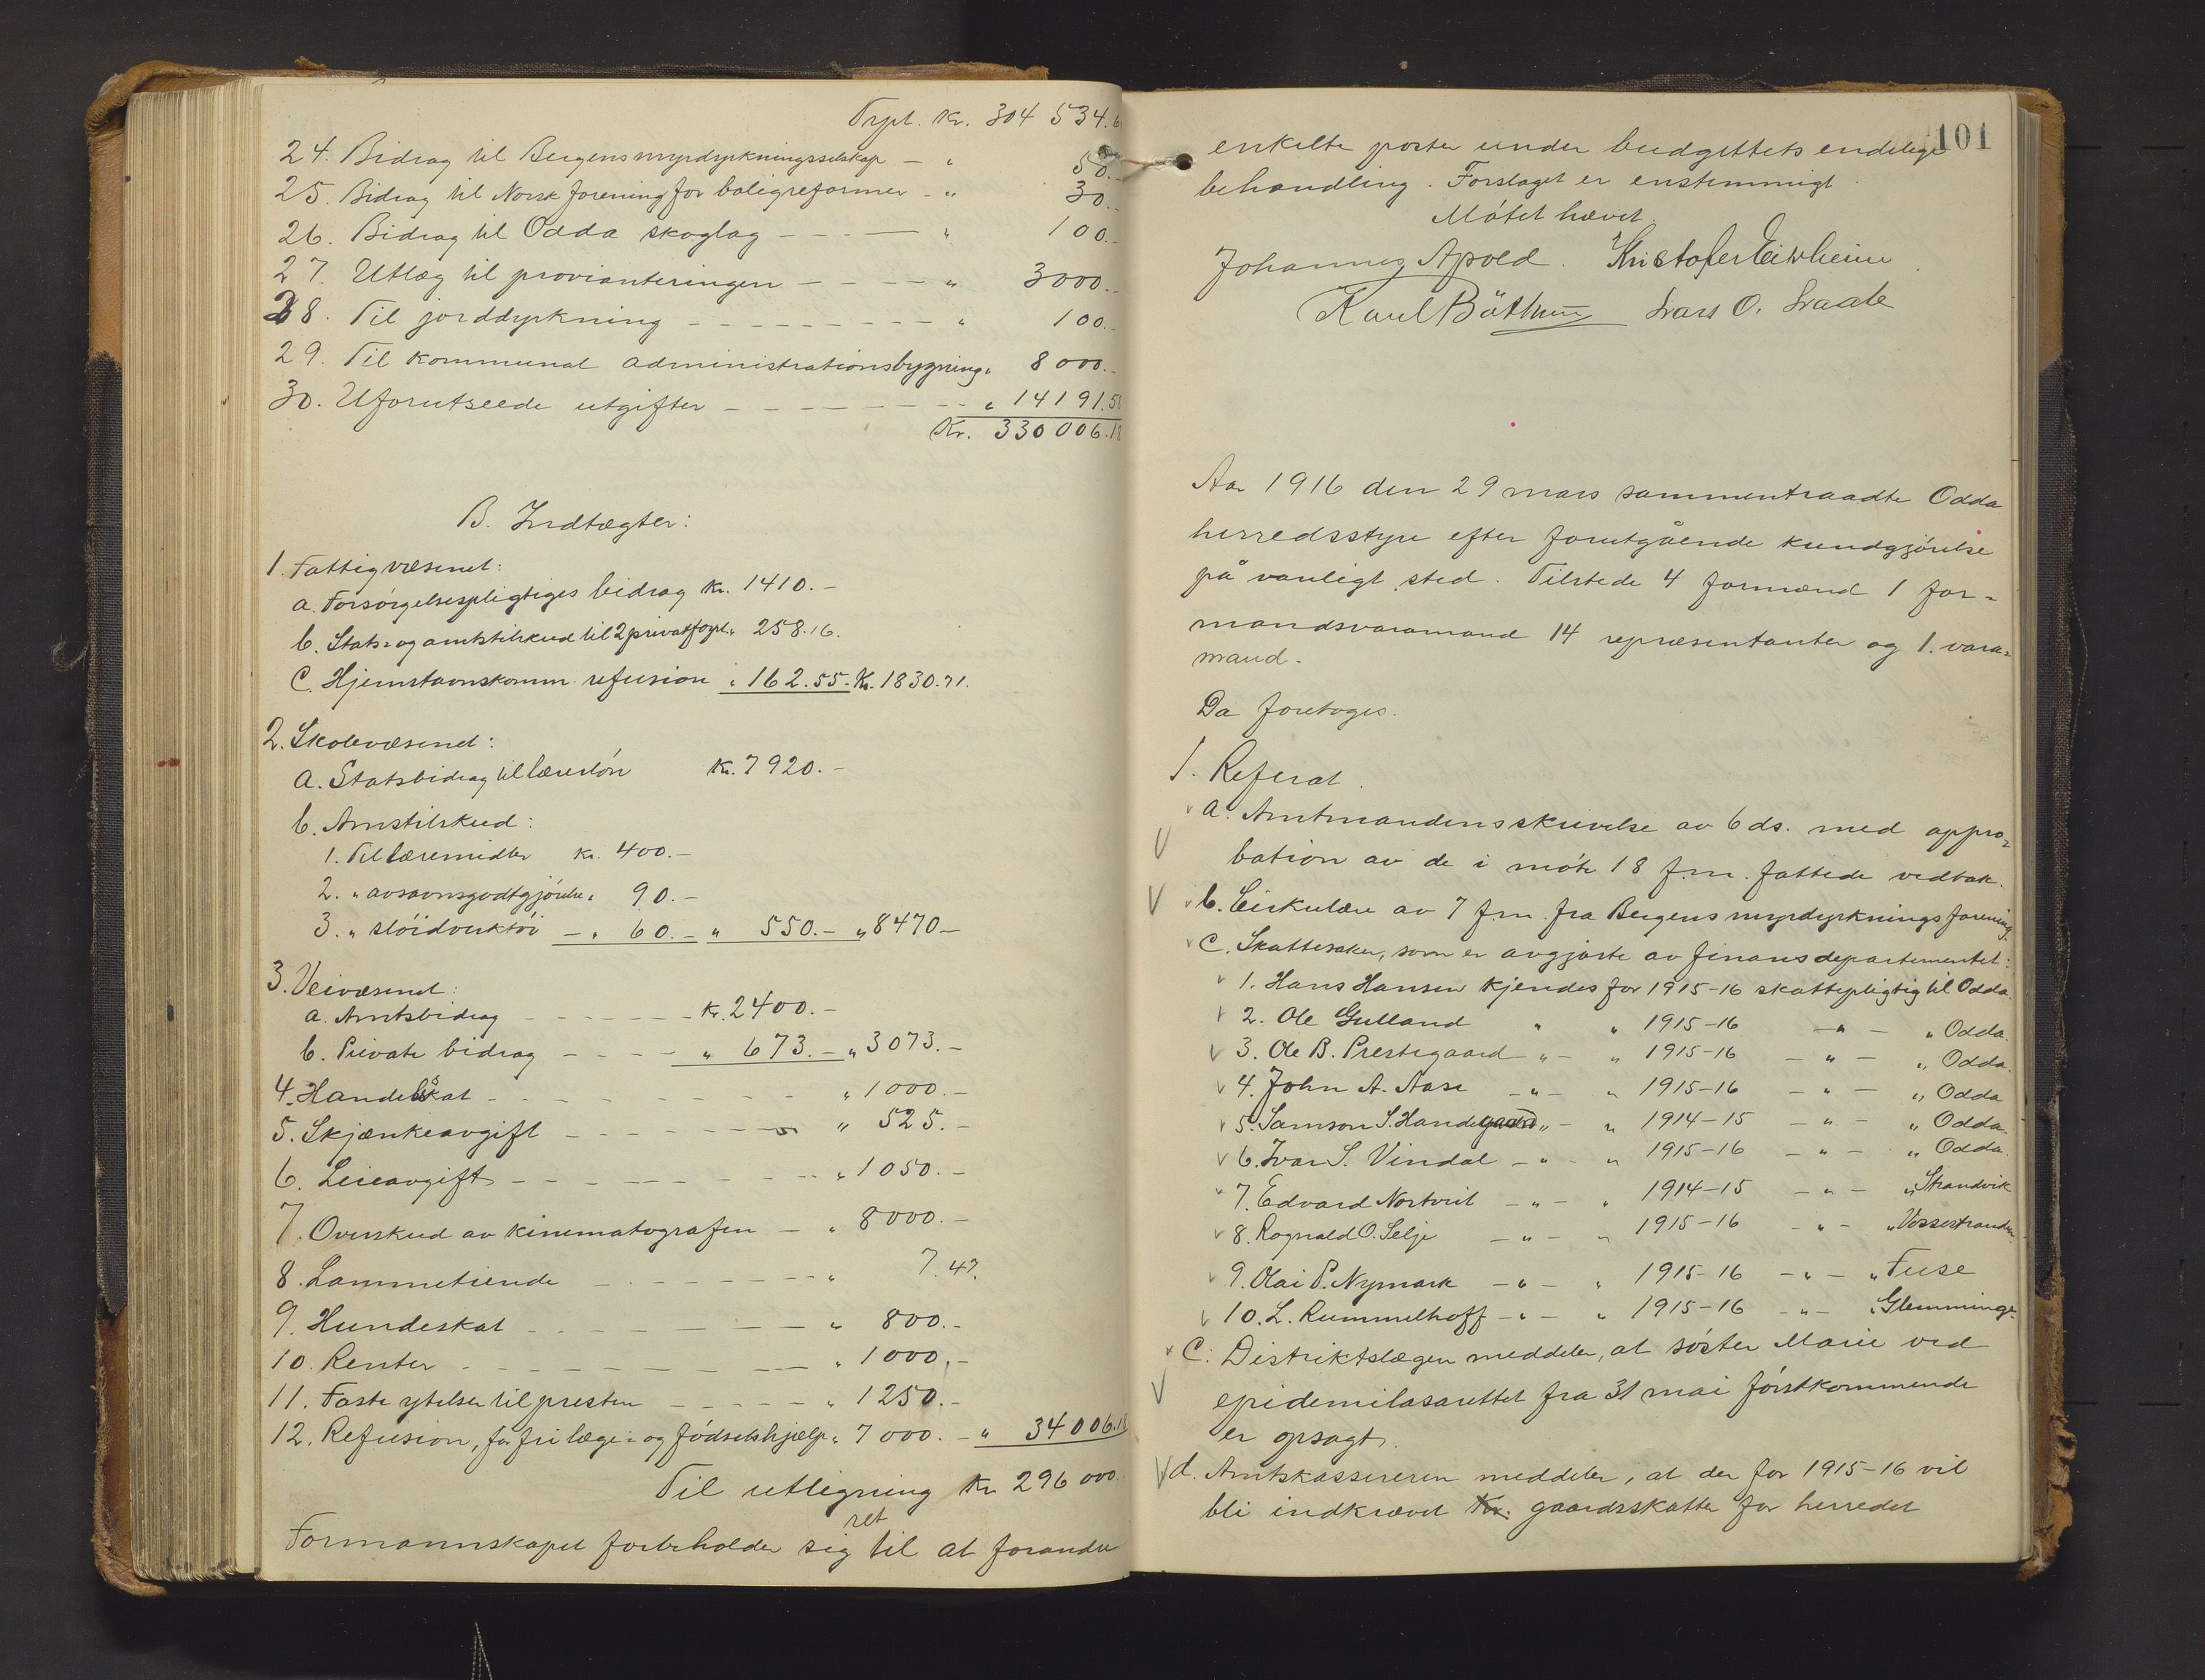 Trpt. Kr. 304 534.6
24. Bidrag til Bergens myrdyrkningsselskap — " 50.-
25. Bidrag til Norsk forening for boligreformer - " 30.-
26. Bidrag til Odda skoglag - - - — " 100.-
27. Utlæg til provianteringen - - - - " 3000.-
28. Til jorddyrkning - - - - - - - - - " 100.-
29. Til kommunal administrationsbygning " 8000.-
30. Uforutseede utgifter - - - - - - - - " 14191.58
Kr. 330 006.18
B. Indtægter:
1. Fattigvæsenet:
a. Forsørgelsespligtiges bidrag Kr. 1410.-
b. Stats- og amtstilskud til 2 privatforpl. " 258.16.
C. Hjemstavnskomm. refusion " 162.55.- Kr. 1830.71.
2. Skolevæsenet:
a. Statsbidrag til lærerløn Kr. 7920.-
b. Amstilskud:
1. Til læremidler Kr. 400.-
2. " avsavnsgodtgjørelse " 90.-
3. " sløidverktøi - " 60.- " 550.- " 8470-
3. Veivæsenet:
a. Amtsbidrag - - - - - - - Kr. 2400.-
b. Private bidrag - - - - " 673.- " 3073.-
4. Handelskat - - - - - - - - " 1000.-
5. Skjænkeavgift - - - - - - - " 525.-
6. Leieavgift - - - - - - - - " 1050.-
7. Overskud av kinematografen - " 8000.-
8. Lammetiende - - - - - - - " 7.47.
9. Hundeskat - - - - - - - " 800.-
10. Renter - - - - - - - - " 1000.-
11. Faste ytelser til presten - - - - - " 1250.-
12. Refusion, for fri læge- og fødselshjælp " 7000.- " 34006.18
Til utligning Kr 296 000.-
Formannskapet forbeholder sig ret til at forandre
101
enkelte poster under budgettets endelige
behandling. Forslaget er enstemmigt.
Møtet hævet.
Johannes Apold. Kristofer Eitrheim
Karl Bøthun Lars O. Fraale
Aar 1916 den 29 mars sammentraadte Odda
herredsstyre efter forutgående kundgjørelse
på vanligt sted. Tilstede 4 formænd 1 for=
mandsvaramand 14 repræsentanter og 1. vara=
mand.
Da foretoges.
1. Referat.
a. Amtmandens skrivelse av 6 ds. med appro=
bation av de i møte 18 f.m. fattede vedtak.
b. Cirkulære av 7 f.m. fra Bergens myrdyrknings forening.
c. Skattesaker, som er avgjorte av finansdepartementet:
1. Hans Hansen kjendes for 1915-16 skattepligtig til Odda.
2. Ole Gulland " " 1915-16 - " - " Odda.
3. Ole B. Prestegaard - " - " 1915-16 - " - " Odda.
4. John A. Aase - " - " 1915-16 - " - " Odda
5. Samson S. Handegaard " - " 1914-15 - " - " Odda.
6. Ivar S. Vindal - " - " 1915-16 - " - " Odda.
7. Edvard Nortvit - " - " 1914-15 - " - " Strandvik
8. Rognald O. Selje - " - " 1915-16 - " - " Vossestranden.
9. Olai P. Nymark - " - " 1915-16 - " - " Fuse
10. L. Rummelhoff - " - " 1915-16 - " - " Glemminge.
C. Distriktslægen meddeler, at søster Marie ved
epidemilasarettet fra 31 mai førstkommende
er opsagt.
d. Amtskassereren meddeler, at der for 1915-16 vil
bli indkrævet Kr. gaardsskatte for herredet